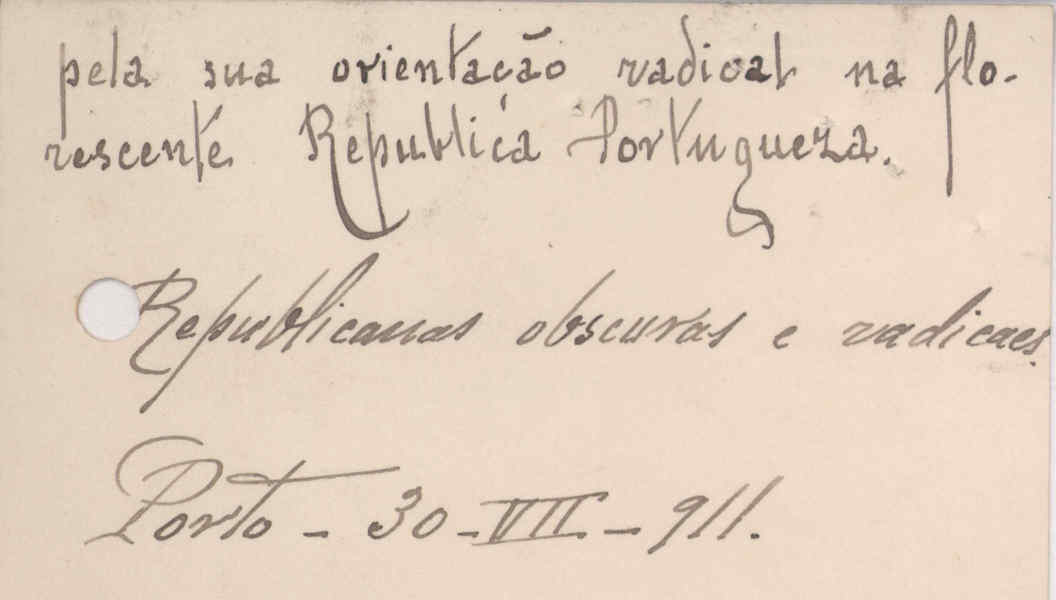 pela sua orientação radical na flo-
rescente Republica Portugueza.
Republicanas obscuras e radicaes.
Porto - 30 - VII - 911.